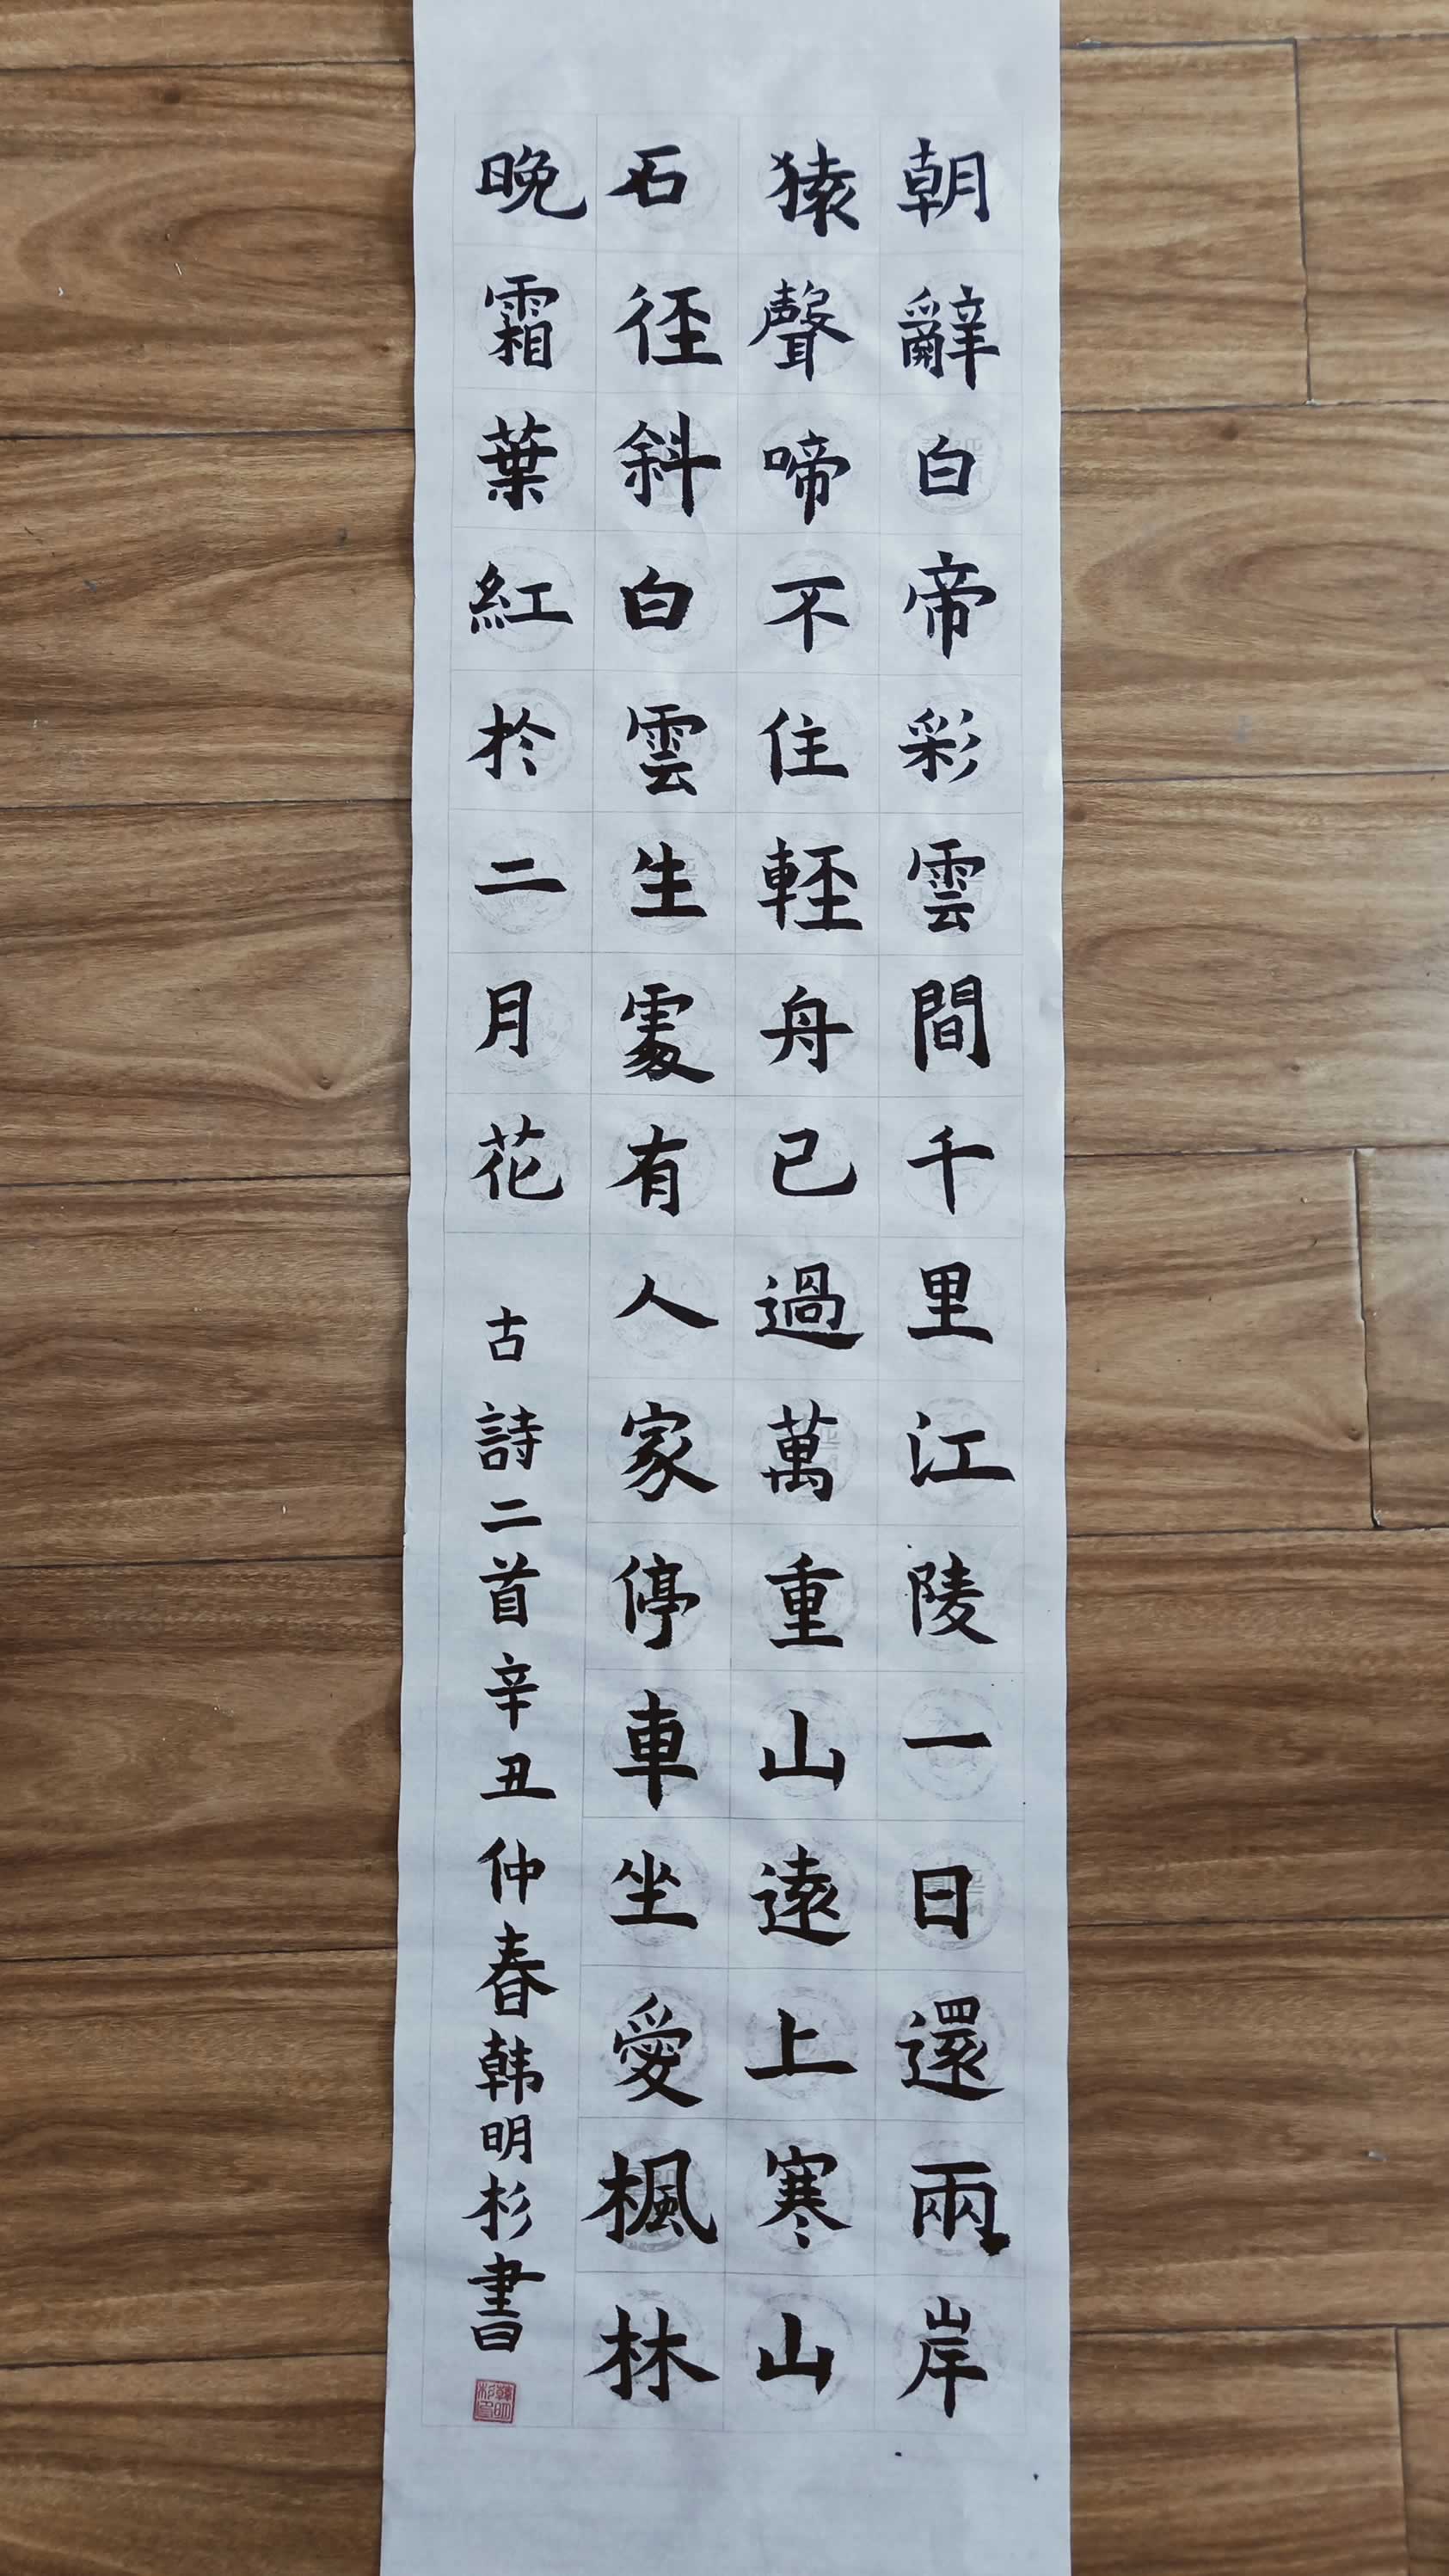 朝辭白帝彩雲間千里江陵一日還兩岸
猿聲啼不住輕舟已過萬重山遠上寒山
石徑斜白雲生處有人家停車坐愛楓林
晚霜葉紅於二月花
古詩二首辛丑仲春韩明杉書